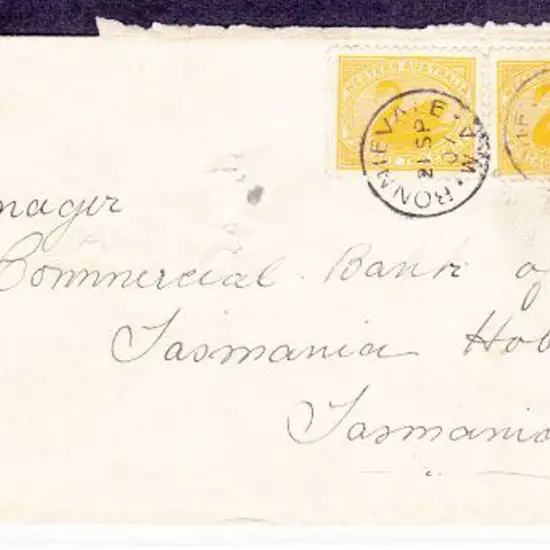 WESTERN AUSTRALIA
BONNIEVALE W.A.
21 SP
01
nager
Commercial Bank of
Tasmania Hob
Tasmania